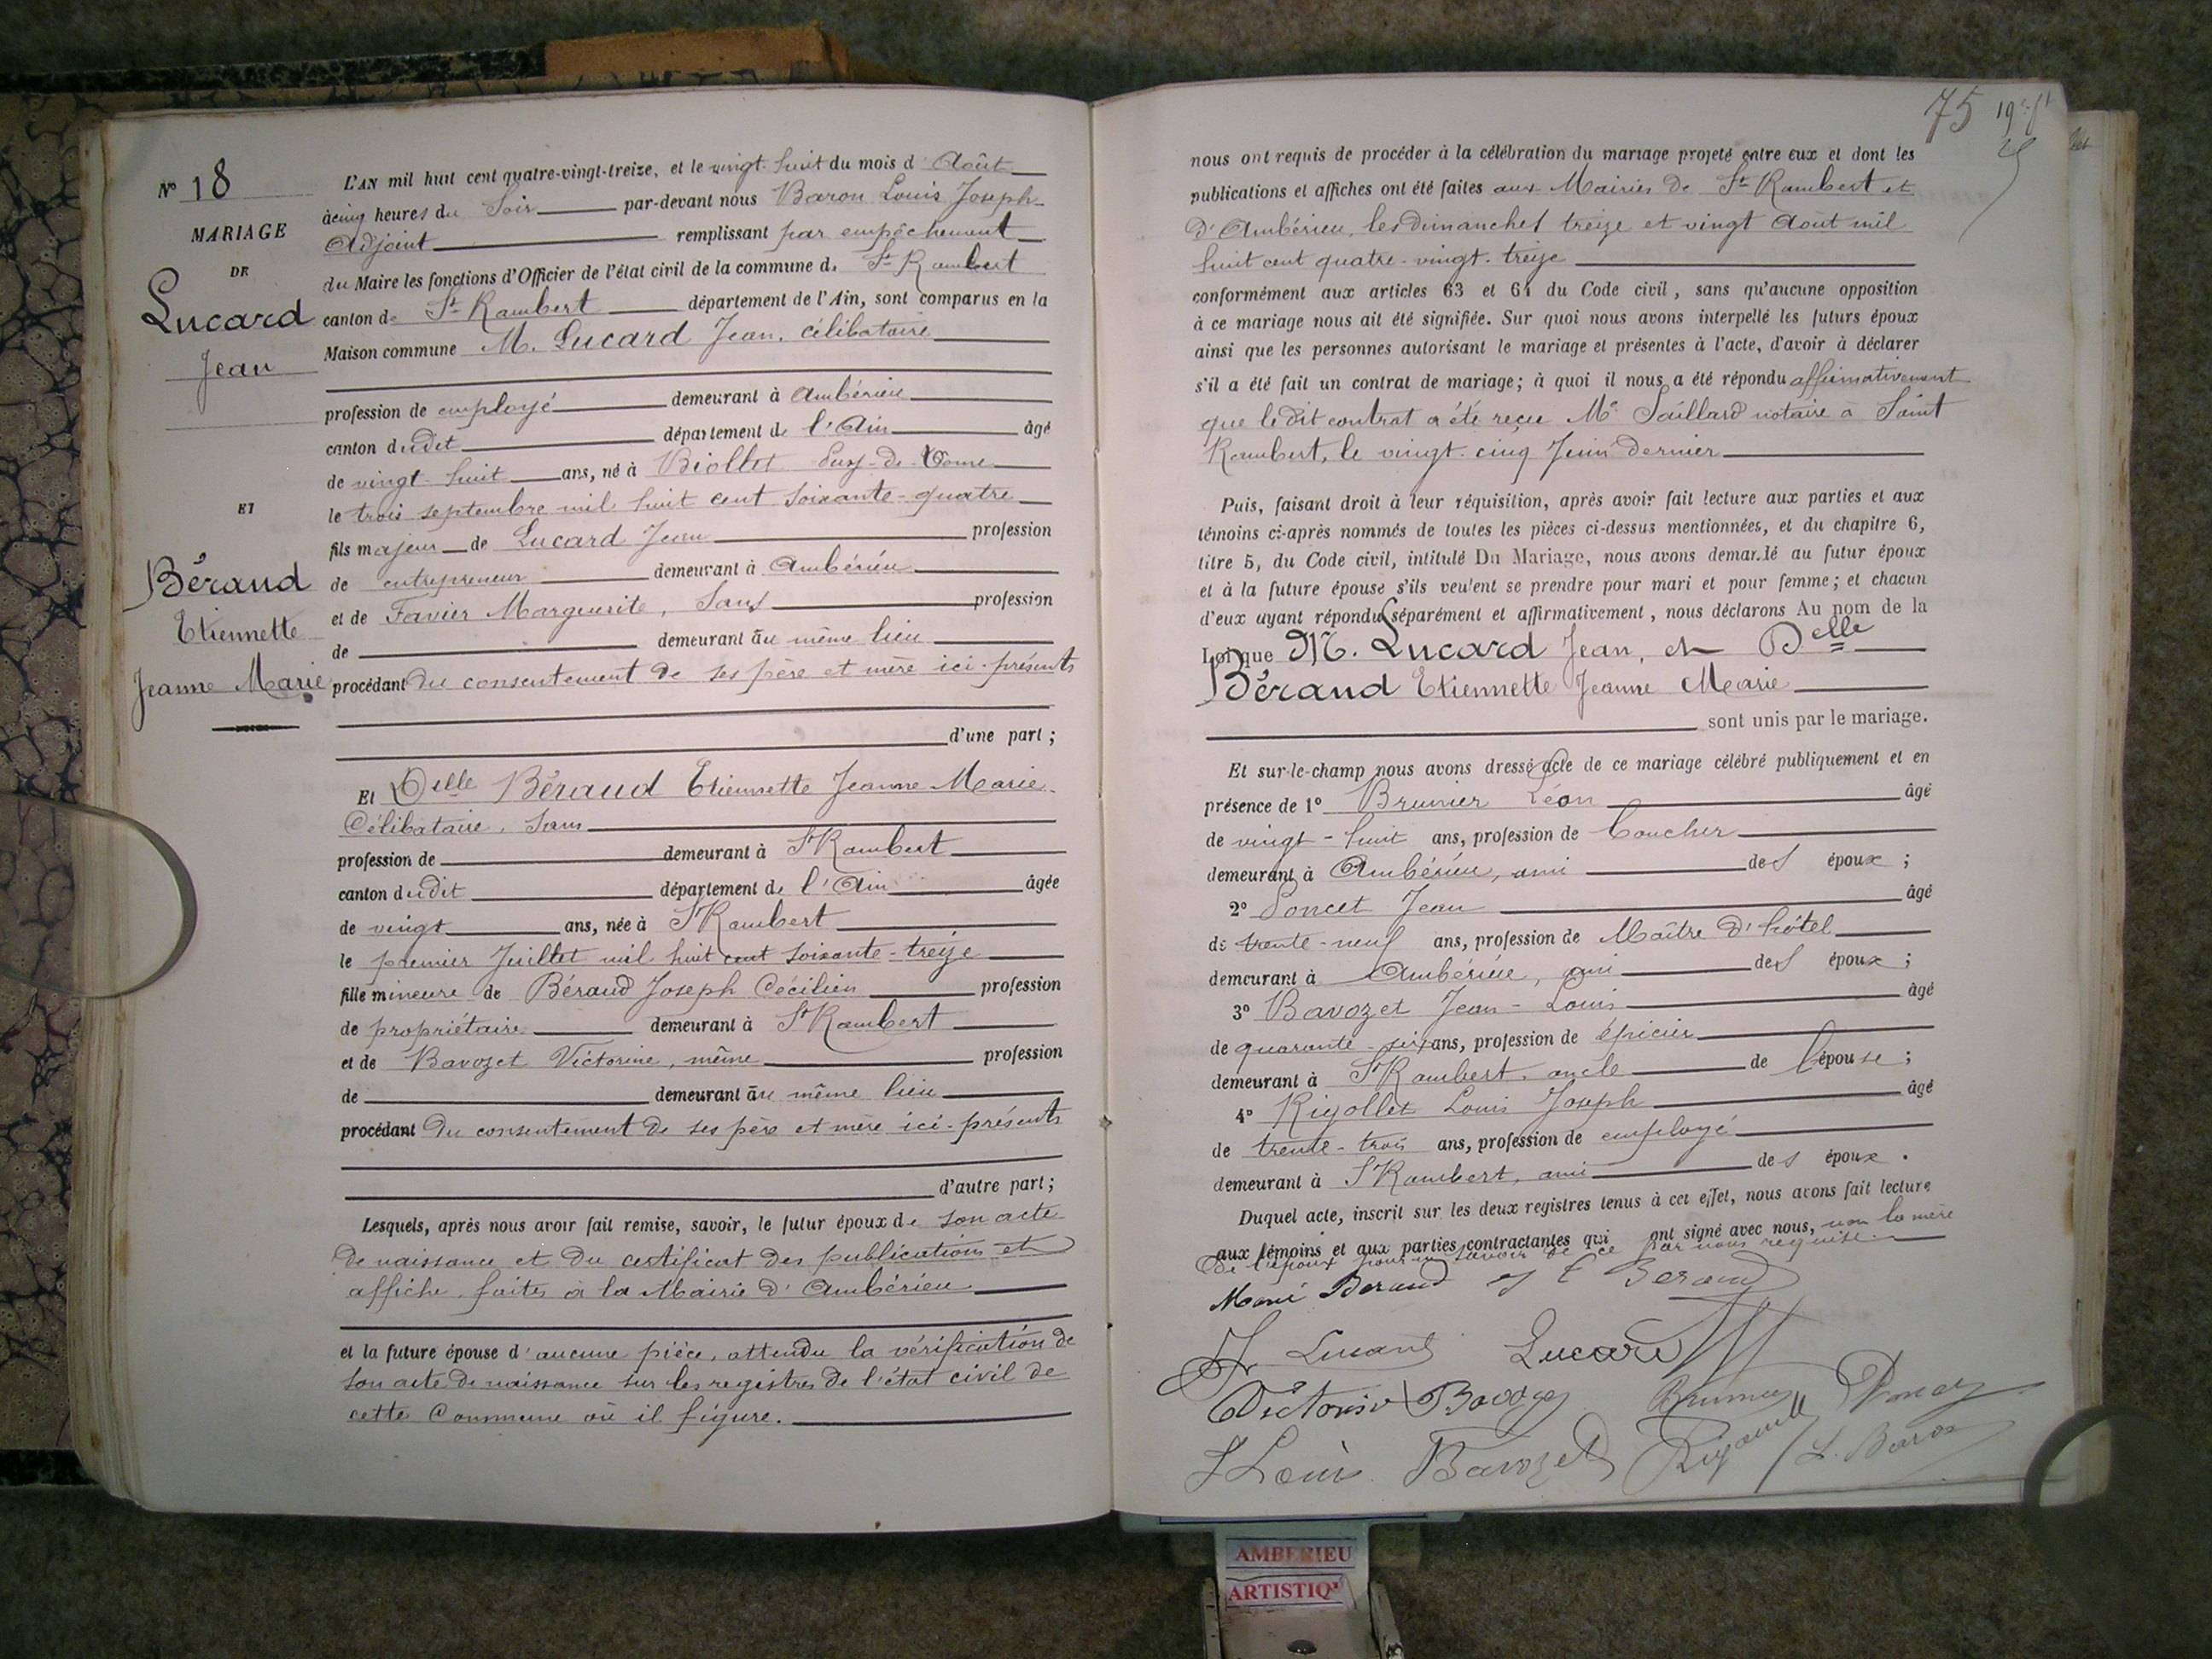 N° 18
MARIAGE
DE
Lucard
Jean
ET
Béraud
Etiennette
Jeanne Marie
L'AN mil huit cent quatre-vingt-treize, et le vingt-huit du mois d'Août
à cinq heures du Soir par-devant nous Baron Louis Joseph
Adjoint remplissant par empêchement
du Maire les fonctions d'Officier de l'état civil de la commune de St Rambert
canton de St Rambert département de l'Ain, sont comparus en la
Maison commune M. Lucard Jean, célibataire
profession de employé demeurant à Ambérieu
canton dudit département de l'Ain âgé
de vingt-huit ans, né à Biollet Puy-de-Dome
le trois septembre mil huit cent soixante-quatre
fils majeur de Lucard Jean profession
de entrepreneur demeurant à Ambérieu
et de Favier Marguerite, Sans profession
de demeurant au même lieu
procédant du consentement de ses père et mère ici-présents
d'une part;
Et Delle Béraud Etiennette Jeanne Marie
Célibataire, sans
profession de demeurant à St Rambert
canton dudit département de l'Ain âgée
de vingt ans, née à St Rambert
le premier Juillet mil huit cent soixante-treize
fille mineure de Béraud Joseph Cécilien profession
de propriétaire demeurant à St Rambert
et de Bavozet Victorine, même profession
de demeurant au même lieu
procédant du consentement de ses père et mère ici-présents
d'autre part;
Lesquels, après nous avoir fait remise, savoir, le futur époux de son acte
de naissance et du certificat des publications et
affiche faites à la Mairie d'Ambérieu
et la future épouse d'aucune pièce, attendu la vérification de
son acte de naissance sur les registres de l'état civil de
cette Commune où il figure.
75
nous ont requis de procéder à la célébration du mariage projeté entre eux et dont les
publications et affiches ont été faites aux Mairies de St Rambert et
d'Ambérieu, les dimanches treize et vingt Août mil
huit cent quatre-vingt-treize
conformément aux articles 63 et 64 du Code civil, sans qu'aucune opposition
à ce mariage nous ait été signifiée. Sur quoi nous avons interpellé les futurs époux
ainsi que les personnes autorisant le mariage et présentes à l'acte, d'avoir à déclarer
s'il a été fait un contrat de mariage; à quoi il nous a été répondu affirmativement
que le dit contrat a été reçu Me Saillard notaire à Saint
Rambert, le vingt-cinq Juin dernier
Puis, faisant droit à leur réquisition, après avoir fait lecture aux parties et aux
témoins ci-après nommés de toutes les pièces ci-dessus mentionnées, et du chapitre 6,
titre 5, du Code civil, intitulé Du Mariage, nous avons demandé au futur époux
et à la future épouse s'ils veulent se prendre pour mari et pour femme; et chacun
d'eux ayant répondu séparément et affirmativement, nous déclarons Au nom de la
Loi que M. Lucard Jean, et Delle
Béraud Etiennette Jeanne Marie
sont unis par le mariage.
Et sur-le-champ nous avons dressé acte de ce mariage célébré publiquement et en
présence de 1° Brunier Léon âgé
de vingt-huit ans, profession de boucher
demeurant à Ambérieu, ami des époux;
2° Poncet Jean âgé
de trente-neuf ans, profession de Maître d'hôtel
demeurant à Ambérieu, ami des époux;
3° Bavozet Jean-Louis âgé
de quarante-six ans, profession de épicier
demeurant à St Rambert, oncle de l'épouse;
4° Rigollet Louis Joseph âgé
de trente-trois ans, profession de employé
demeurant à St Rambert, ami des époux.
Duquel acte, inscrit sur les deux registres tenus à cet effet, nous avons fait lecture
aux témoins et aux parties contractantes qui ont signé avec nous, non la mère
de l'époux pour un savoir de ce par nous requise.
Marie Beraud Beraud
Lucard Lucard
Victorine Bavozet Brunier Poncet
Louis Bavozet L. Baron
AMBERIEU
ARTISTIQ'